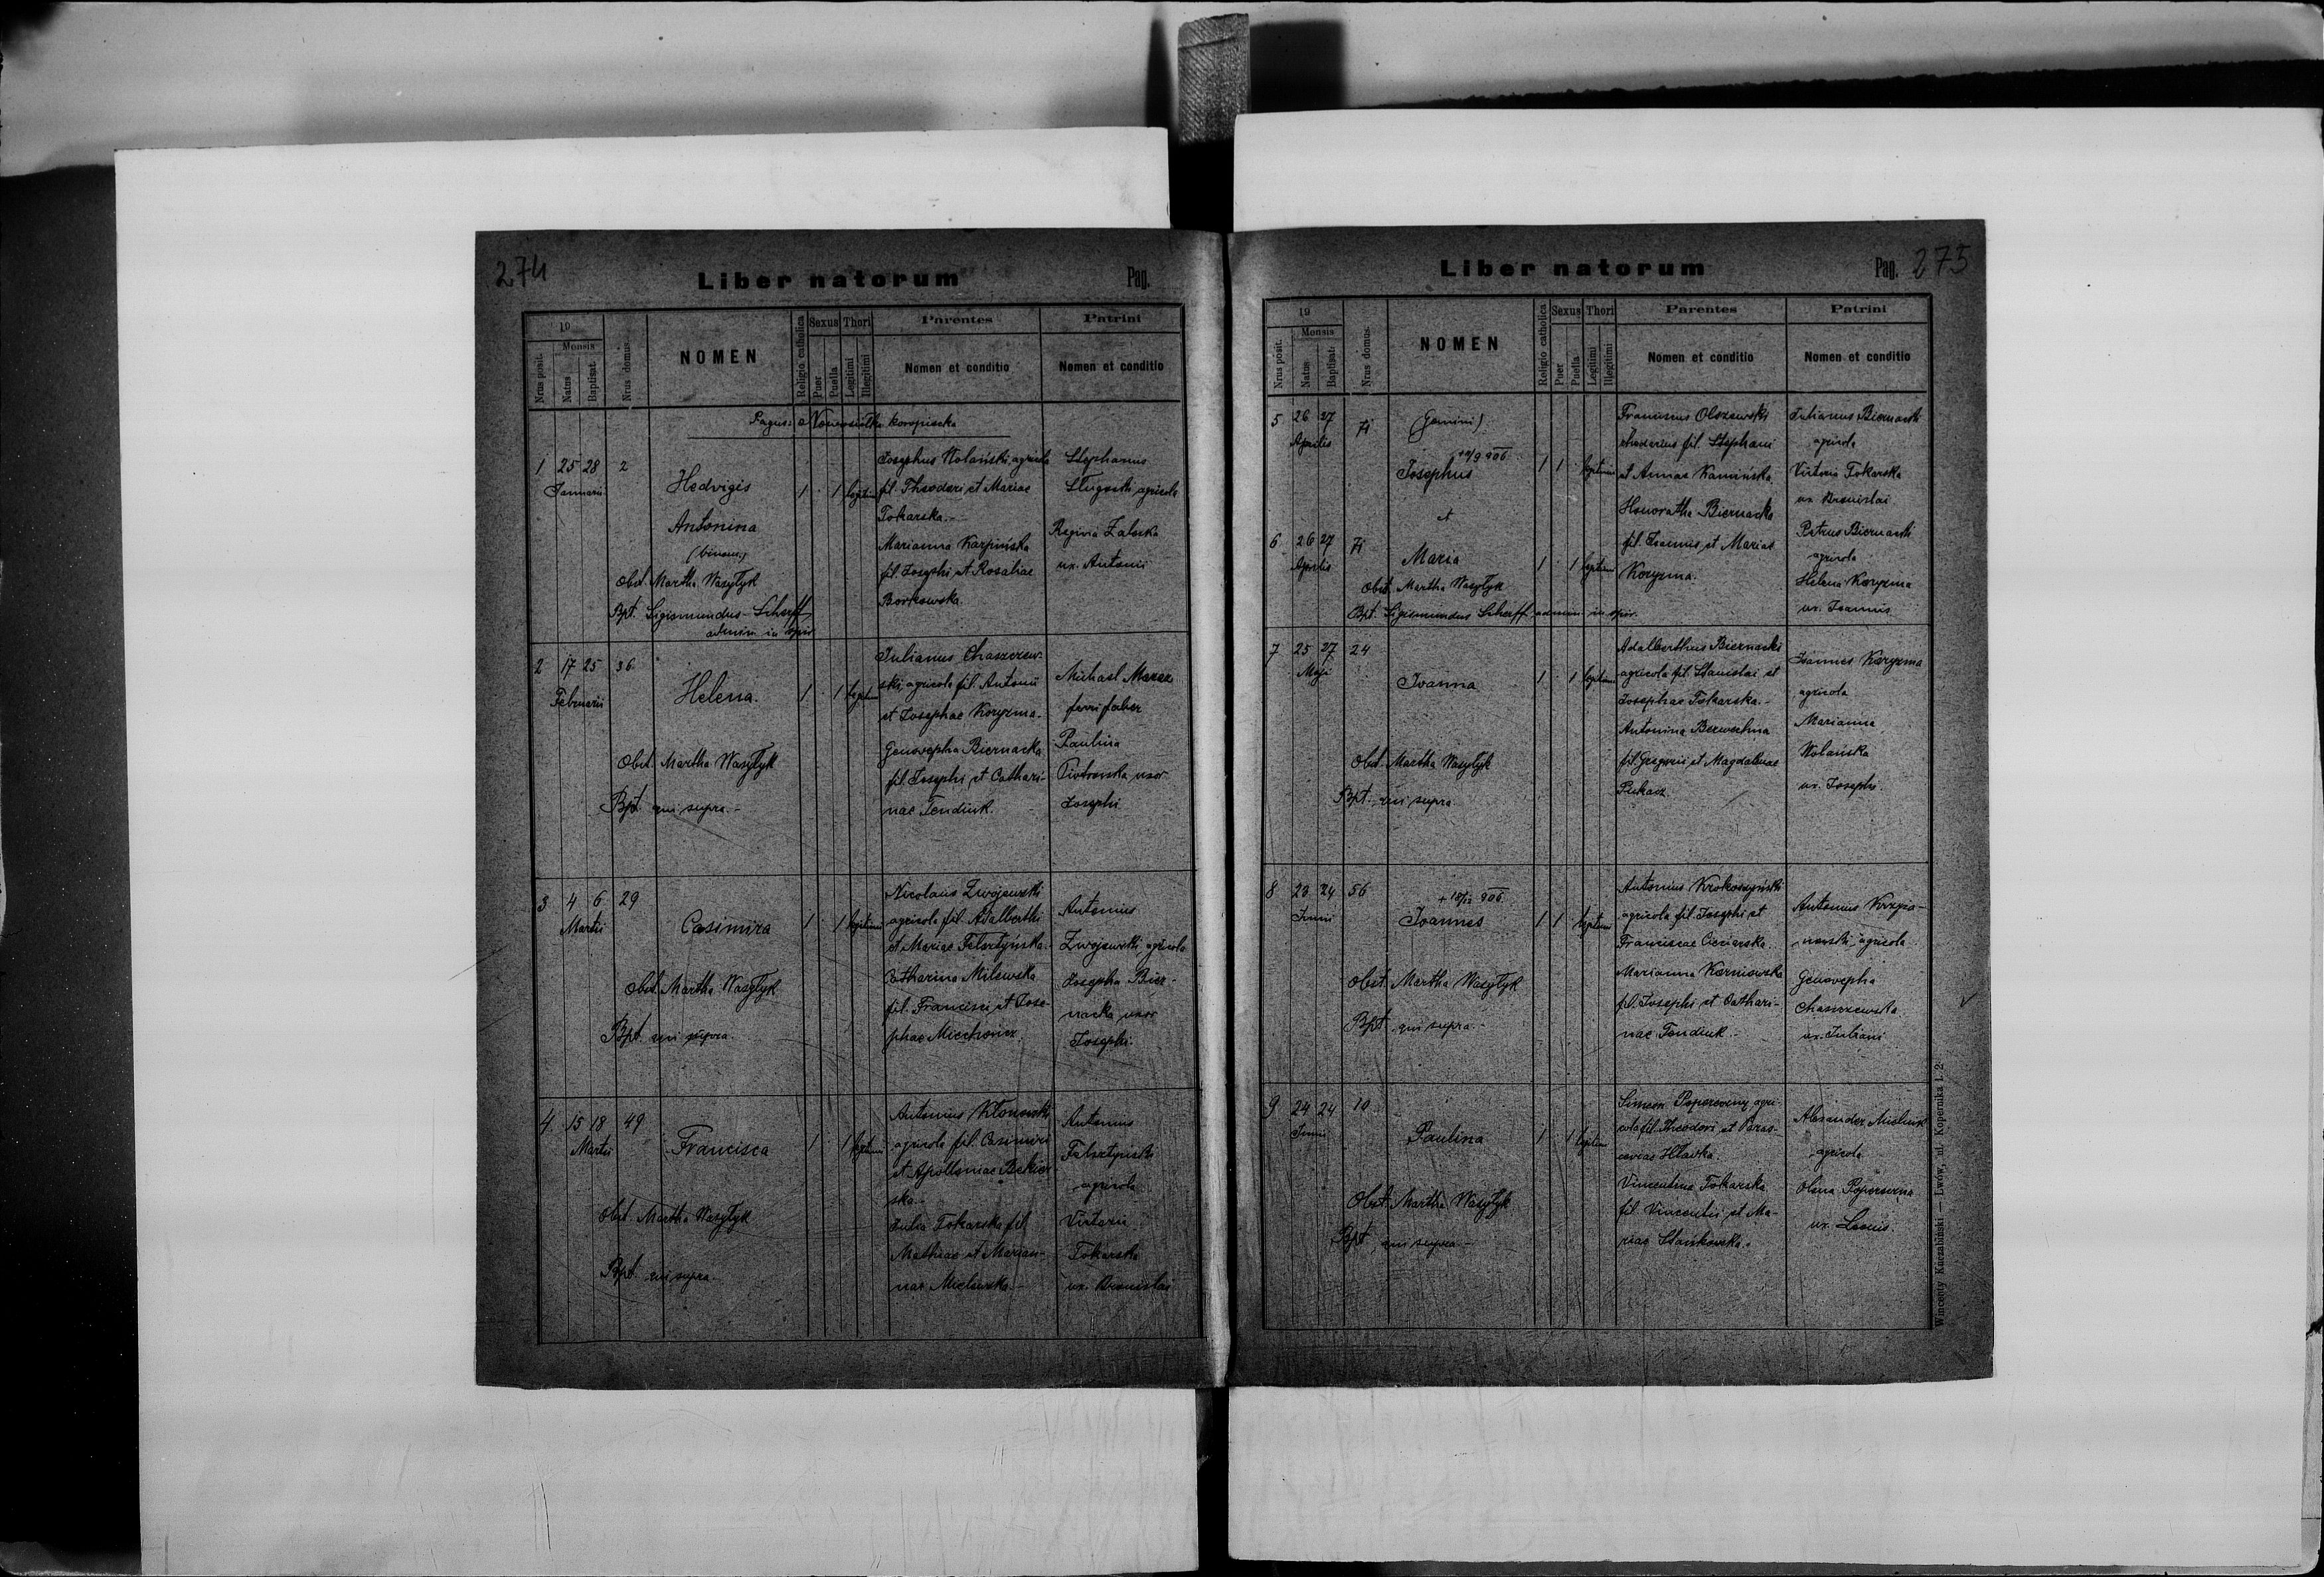 274
Liber natorum
Pag.
19
Mensis
Nrus posit.
Natus
Baptisat.
Nrus domus.
NOMEN
Religio catholica
Sexus
Puer
Puella
Thori
Legitimi
Illegitimi
Parentes
Nomen et conditio
Patrini
Nomen et conditio
Pagus:
1 25 28 2
Januarii
Hedvigis
Antonina
(binom.)
1 1
Josephus Wolański, agricola
fil. Theodori et Mariae
Tokarska.-
Marianna Karpińska
fil. Josephi et Rosaliae
Borkowska.
Stephanus
agricola
Regina Zalewska
ux. Antonii
Obst. Martha Wasylyk
Bpt. Sigismundus Scharff
admin. in spir.
2 17 25 36
Februarii
Helena.
1 1
Julianus Chaszczew-
ski, agricola fil. Antonii
et Josephae Koryzma.
Genovepha Biernacka
fil. Josephi et Cathari-
nae Tendiuk.
Michael
ferri faber
Paulina
Piotrowska, uxor
Josephi
Obst. Martha Wasylyk
Bpt. qui supra.-
3 4 6 29
Martii
Casimira
1 1
Nicolaus Zwojewski
agricola fil. Adalberthi
et Mariae Felsztyńska.-
Catharina Milewska
fil. Francisci et Jose-
phae
Antonius
Zwojewski, agricola
Josepha Bier-
nacka, uxor
Josephi.
Obst. Martha Wasylyk
Bpt. qui supra.
4. 15 18 49
Martii
Francisca
1 1
Antonius Klonowski
agricola fil. Casimiri
et Apolloniae
ska.-
Julia Tokarska fil.
Mathiae et Marian-
nae
Antonius
Felsztyński
agricola
Victoria
Tokarska
ux. Bronislai
Obst. Martha Wasylyk
Bpt. qui supra.-
Liber natorum
Pag. 275
19
Mensis
Nrus posit.
Natus
Baptisat.
Nrus domus.
NOMEN
Religio catholica
Sexus
Puer
Puella
Thori
Legitimi
Illegitimi
Parentes
Nomen et conditio
Patrini
Nomen et conditio
5 26 27
Aprilis
(Gemini)
Josephus
et
1 1
Franciscus Olszewski
fil. Stephani
et Annae Kamińska
Honoratha Biernacka
fil. Joannis et Mariae
Koryzma.
Julianus Biernacki
agricola
Victoria Tokarska
ux. Bronislai
6 26 27
Aprilis
Maria
1 1
Petrus Biernacki
agricola
Helena Koryzma
ux. Joannis
Obst. Martha Wasylyk
Bpt. Sigismundus Scharff admin. in spir.
7 25 27 24
Maji
Joanna
1 1
Adalberthus Biernacki
agricola fil. Stanislai et
Josephae Tokarska.-
Antonina
fil. Gregorii et Magdalenae
Joannes Koryzma
agricola
Marianna
Wolańska
ux. Josephi.
Obst. Martha Wasylyk
Bpt. qui supra.
8 23 24 56
Junii
Joannes
1 1
Antonius Krokoszyński
agricola fil. Josephi et
Franciscae
Marianna Karniowska
fil. Josephi et Cathari-
nae Tendiuk.-
Antonius Krzyża-
nowski, agricola
Genovepha
Chaszczewska
ux. Juliani
Obst. Martha Wasylyk
Bpt. qui supra.-
9 24 24 10
Junii
Paulina
1 1
Simeon agri-
cola fil. Theodori et Paras-
ceviae
Vincentina Tokarska
fil. Vincentii et Ma-
riae Stańkowska.
Alexander
agricola
Olena
ux.
Obst. Martha Wasylyk
Bpt. qui supra.-
Wincenty Kuczabiński — Lwów, ul. Kopernika l. 2.